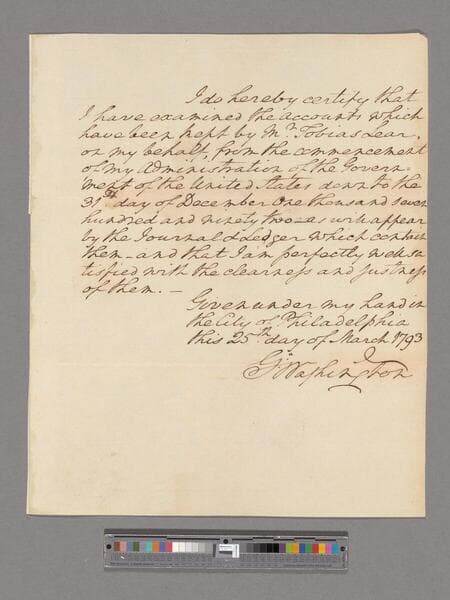 I do hereby certify that
I have examined the accounts which
have been kept by Mr. Tobias Lear,
on my behalf, from the commencement
of my Administration of the Govern-
ment of the United States down to the
31st day of December One thousand seven
hundred and ninety two—as will appear
by the Journal & Ledger which contain
them—and that I am perfectly well sa
tisfied with the clearness and justness
of them.—
Given under my hand in
the City of Philadelphia
this 25th day of March 1793
Go: Washington